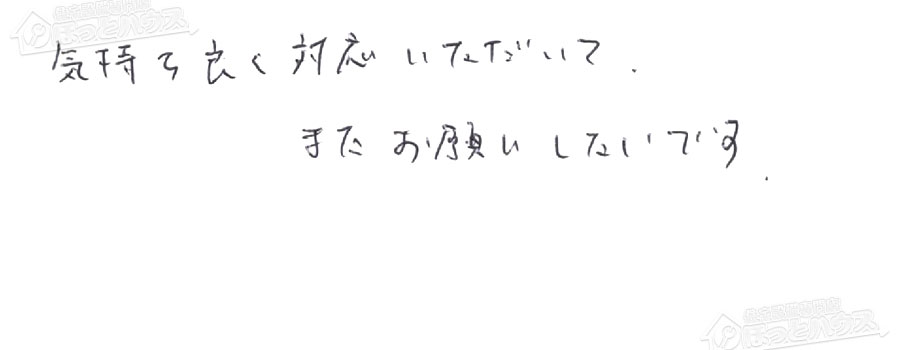 ほっとハウス
気持ち良く対応いただいて.
またお願いしたいです.
ほっとハウス